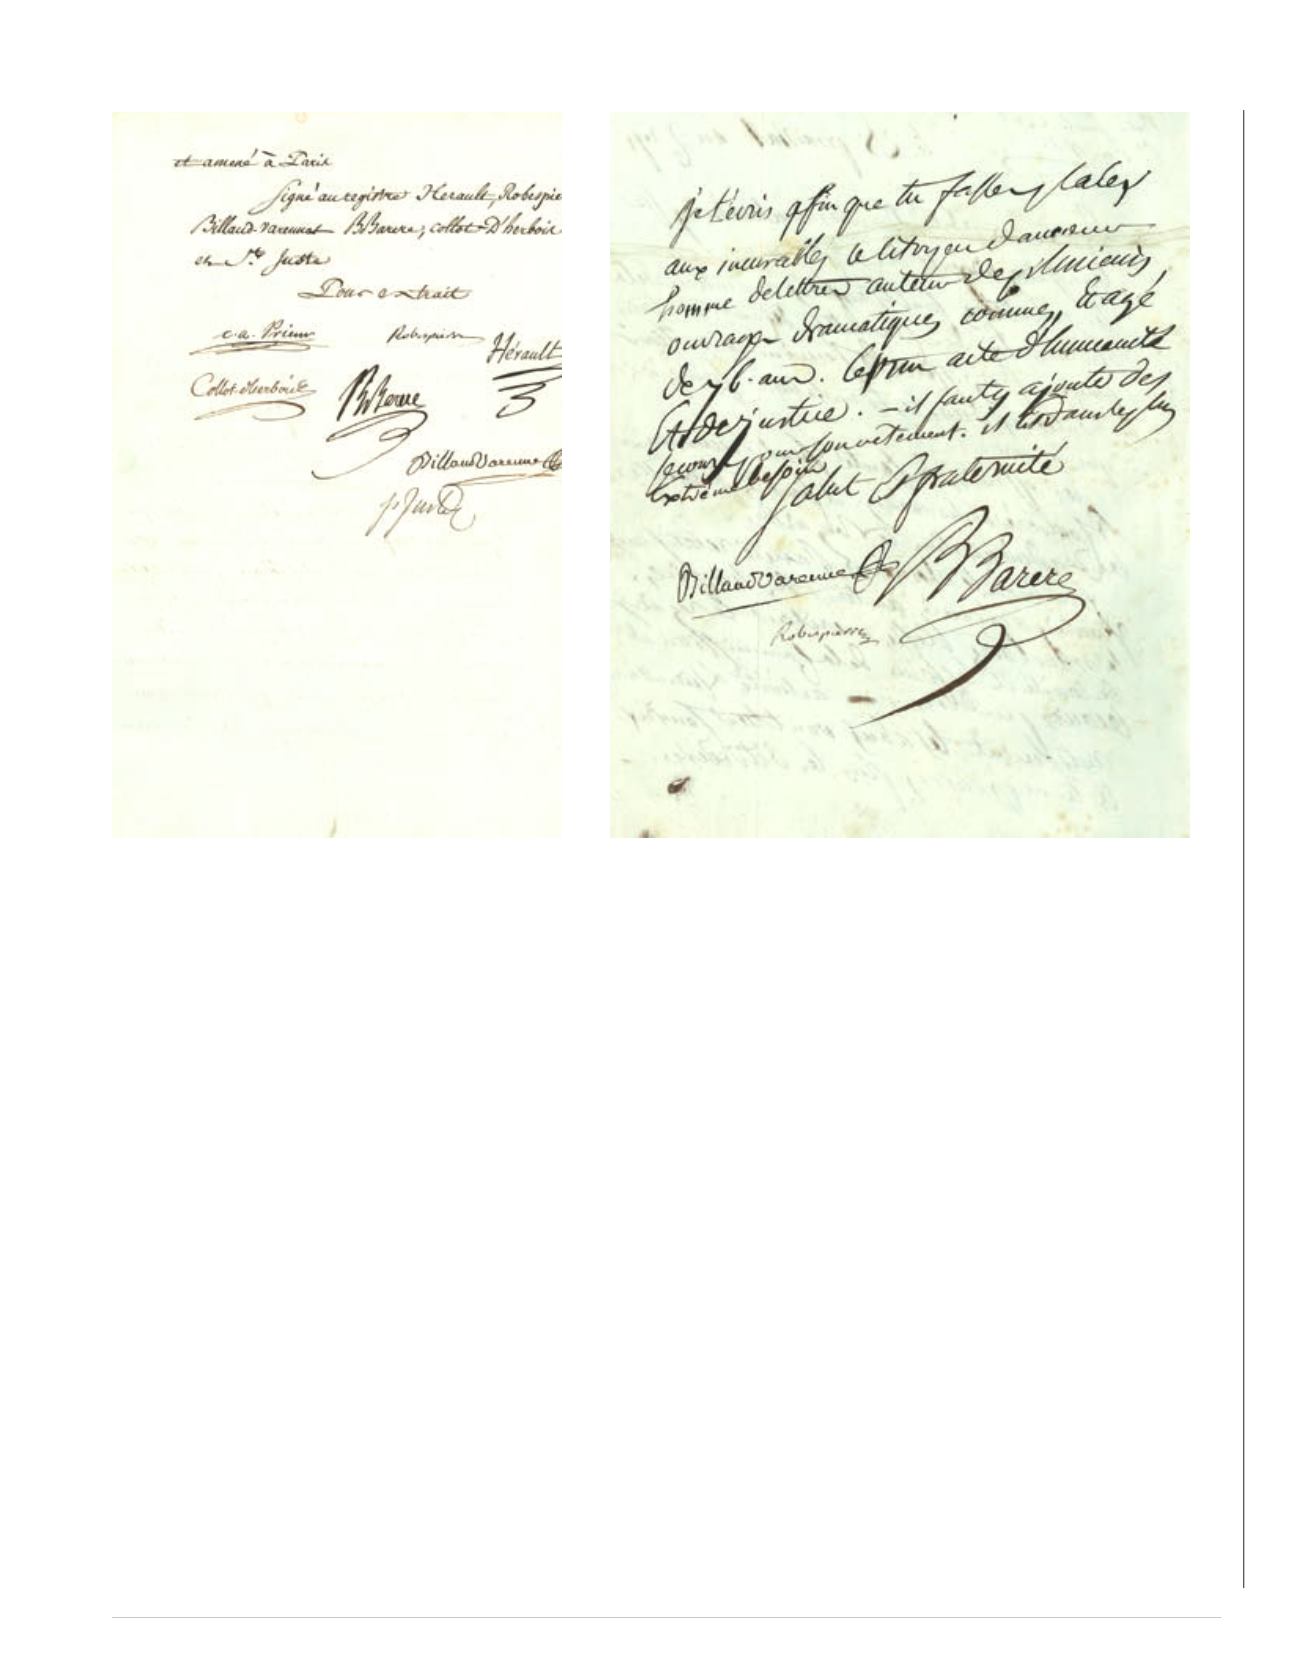 et amené à Paris
Signé au registre Herault, Robespie
Billaud-Varennes BBarere, collot-D'herbois
et St. Juste
Pour extrait
c.a. Prieur Robespierre Hérault
Collot d'herbois BBarere
Billaud Varenne
St Just
je t'écris affin que tu fasses placer
aux incurables le citoyen
homme de lettres auteur de plusieurs
ouvrages dramatiques connues, et agé
de ans. C'est un acte d'humanité
et de justice. – il faut y ajouter des
secours pour son vêtement. il est dans les plus
extrême besoin
Salut et fraternité
Billaud Varenne BBarere
Robespierre